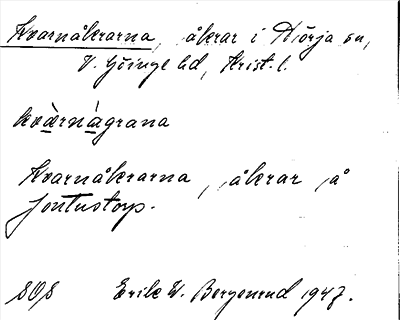 Kvarnåkrarna, åkrar i Nörja sn,
V. Göinge hd, Krist. l.
kvàrnàgrana
Kvarnåkrarna, åkrar på
Jontustorp.
SOS Erik W. Bergenrud 1947.